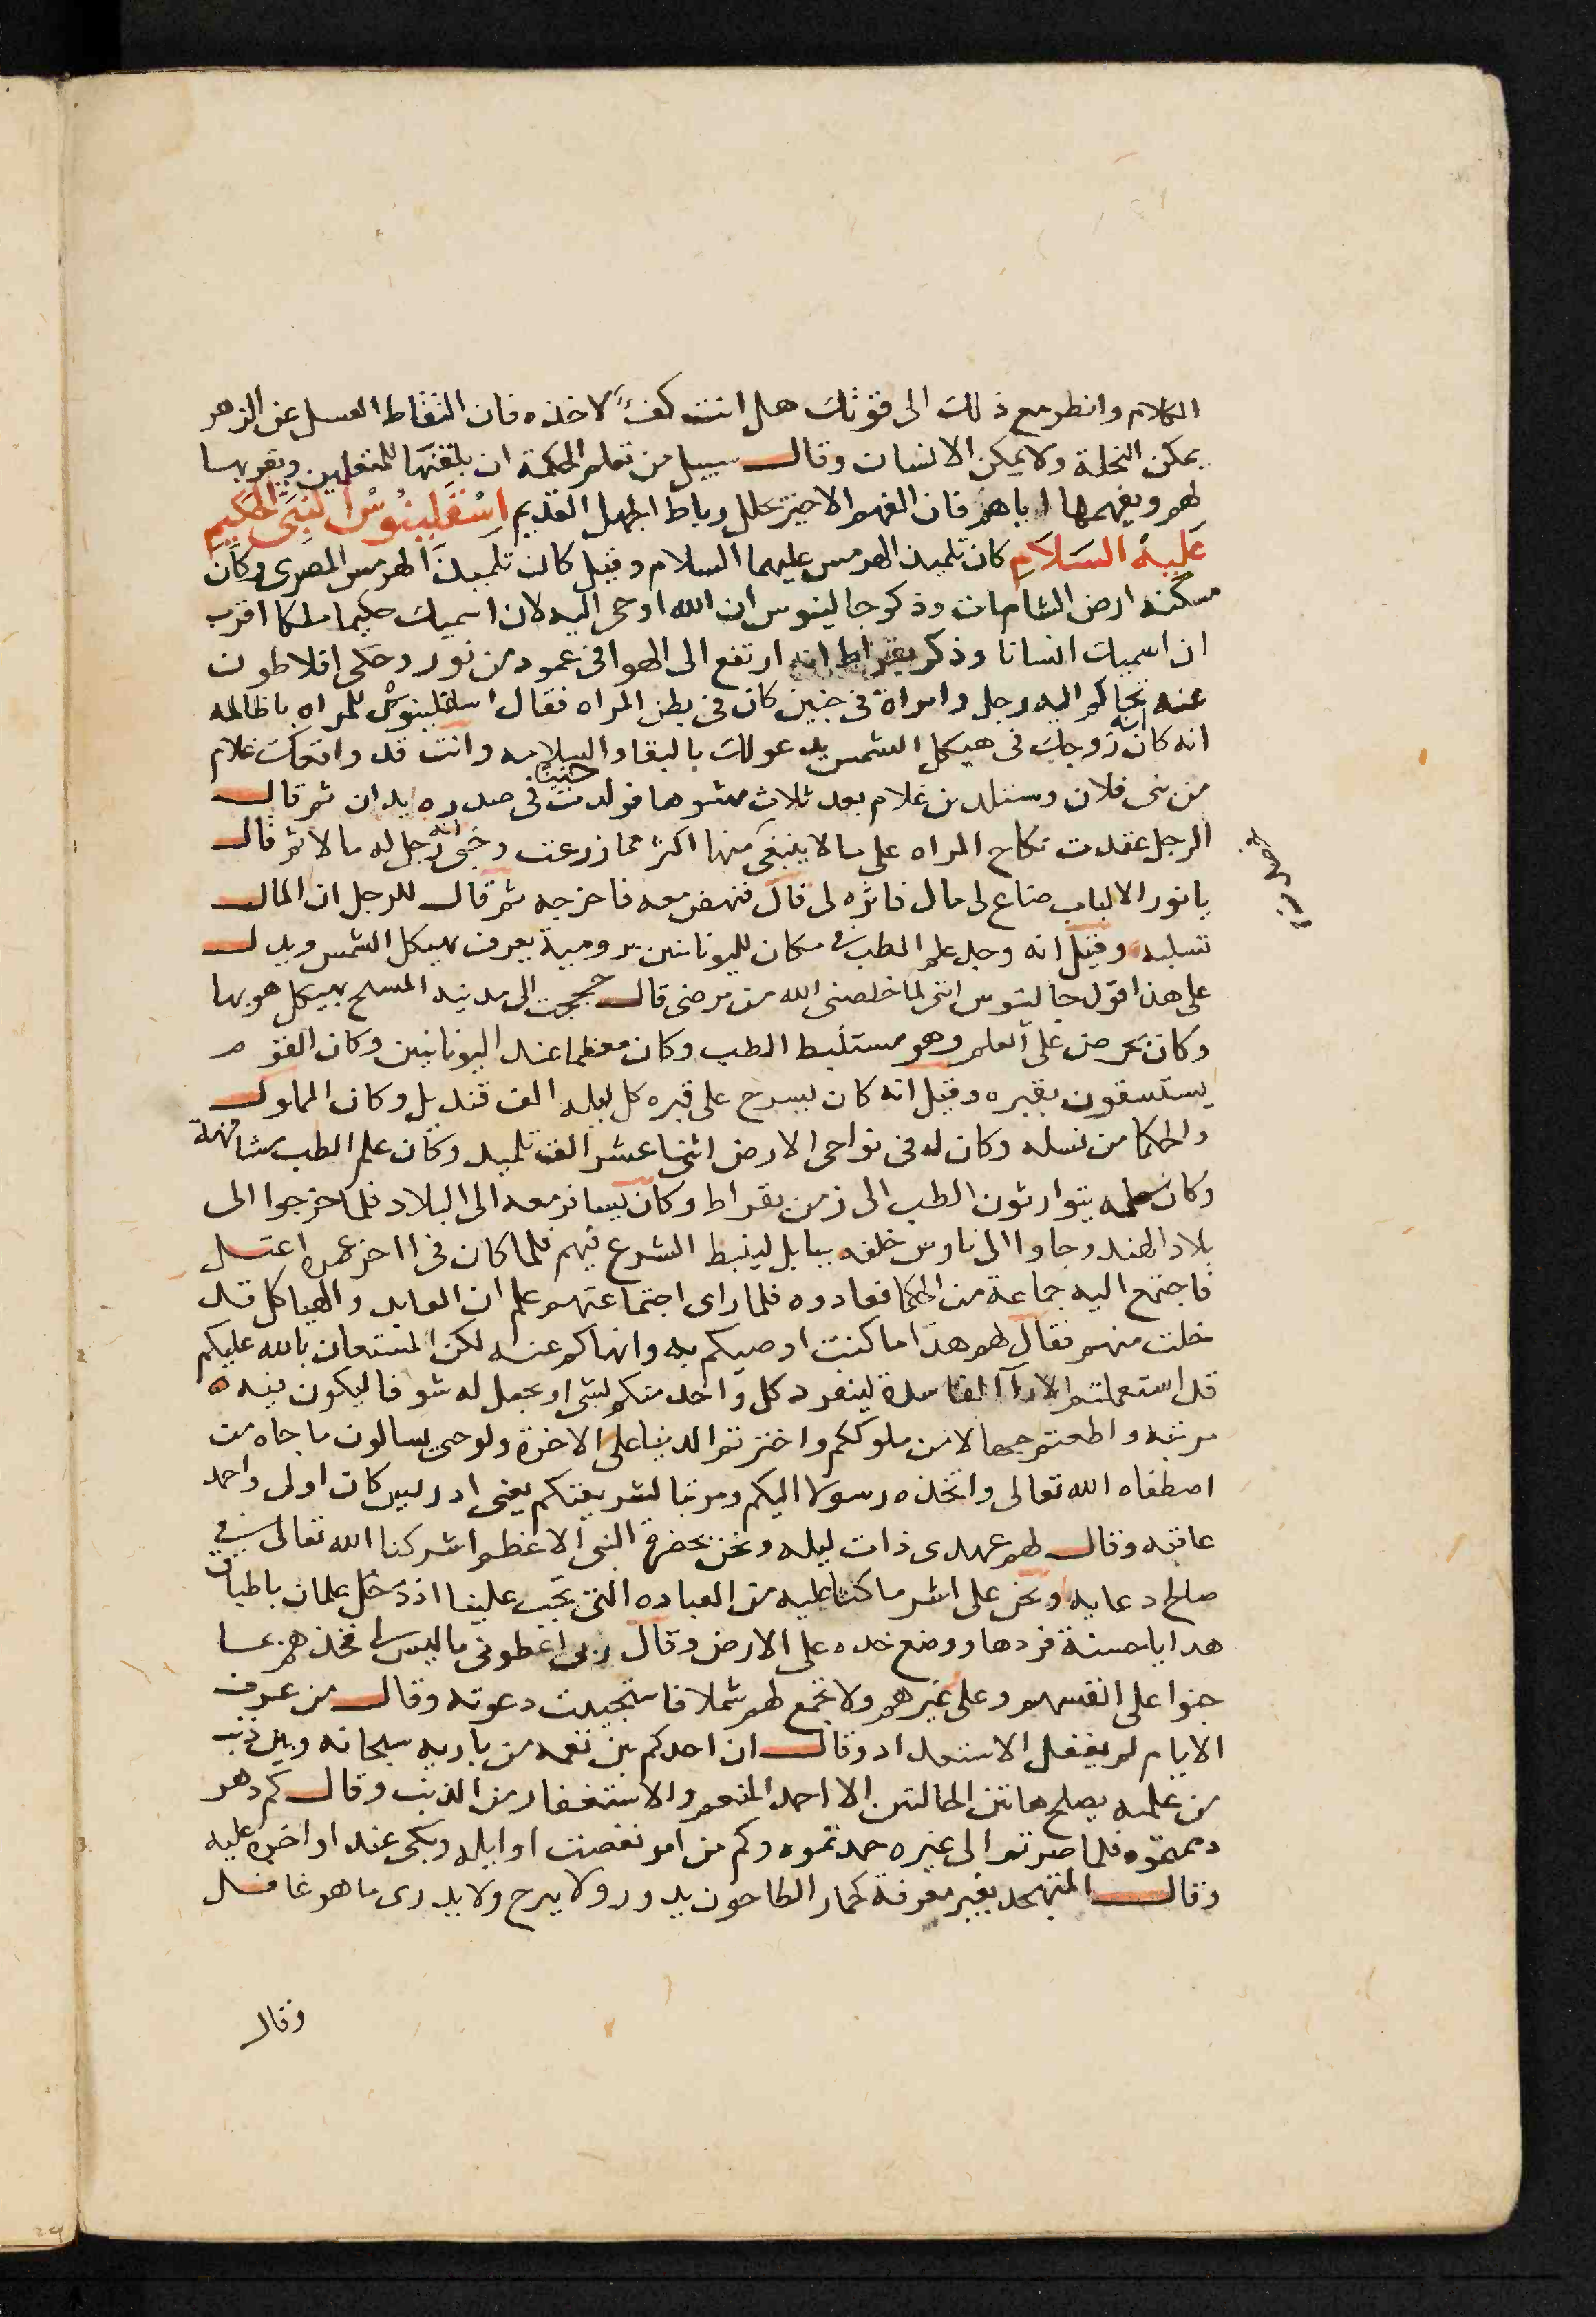 الكلام وانظر مع ذلك الى قوتك هل انت كفءً لاخذه فان التقاط العسل عن الزهر
يمكن النحلة ولا يمكن الانسان وقال سبيل من تعلم الحكمة ان يلقنها للمتعلمين ويقربها
لهم ويفهمها اياهم فان الفهم الاخير يحلل رباط الجهل القديم اسْقَلبينُوسُ النبيَّ الحَكيمِ
عَلَيهْ السَلَامِ كان تلميذ الهرمس عليهما السلام وقيل كان تلميذَ الهرمس المصرى وكان
مسكنه ارض الشامات وذكر جالينوس ان الله اوحى اليه لان اسميك حكيما ملكا اقرب
ان اسميك انسانا وذكر بقراط انه ارتفع الى الهوا فى عمود من نور وحكى افلاطون
عنه انه تحاكم اليه رجل وامراة فى جنين كان فى بطن المراه فقال اسقلبينوس للمراه ياظالمه
انه كان زوجك فى هيكل الشمس يدعو لك بالبقا والسلامه وانت قد واقعك غلام
من بنى فلان وستلدين غلام بعد ثلاث مشوها فولدت جنينا فى صدره يدان ثم قال
الرجل عقدت نكاح المراه على ما لا ينبغى منها اكثر مما زرعت وخبى رجل له مالا ثم قال
يانور الالباب ضاع لى مال فاثره لى قال فنهض معه فاخرجه ثم قال للرجل ان المال
تسلبه وقيل انه وجد علم الطب فى مكان لليونانيين برومية يعرف بهيكل الشمس ويدل
على هذا قول جالينوس انى لما خلصنى الله من مرضى قال حججت الى مدينه المسلح بهيكل هو بها
وكان يحرض على العلم وهو مستنبط الطب وكان معظما عند اليونانيين وكان القوم
يستسقون بقبره وقيل انه كان يسرج على قبره كل ليله الف قنديل وكان الملوك
والحكما من نسله وكان له فى نواحى الارض اثنا عشر الف تلميد وكان علم الطب مشافهة
وكان يتوارثون الطب الى زمن بقراط وكان يسافر معه الى البلاد فلما خرجوا الى
بلاد الهند وجاوا الى ناوس خلفه ببابل ليضبط الشرع فيهم فلما كان فى اخر عمره اعتل
فاجتمع اليه جماعة من الحكما فعادوه فلما راى اجتماعهم علم ان العابد والهياكل قد
خلت منهم فقال لهم هذا ما كنت اوصيكم به وانهاكم عنه لكن المستعان بالله عليكم
قد استعملتم الارآ الفاسدة لينفرد كل واحد منكم بشى او يجعل له شرفا ليكون بنيه
مرثه واطعتم جهالا من ملوككم واخترتم الدنيا على الاخرة ولوحى يسالون ماجاه من
اصطفاه الله تعالى واتخذه رسولا اليكم ومرتبا لشريعتكم يعنى ادريس كان اولى واحمد
عاقبه وقال لهم عهدى ذات ليله ونحن بحضرة النبى الاعظم اشركنا الله تعالى فى
صالح دعايه ونحن على اثر ما كنا عليه من العباده التى تجب علينا اذ دخل غلمان باطباق
هدايا حسنة فردها ووضع خده على الارض وقال ربى اعطونى ما ليس لى فخذهم بما
جنوا على انفسهم وعلى غيرهم ولا تجمع لهم شملا فاستجيبت دعوته وقال من عرف
الايام لم يغفل الاستعداد وقال ان احدكم بين نعمه من باريه سبحانه وبين ذنب
من عمله يصلح هاتين الحالتين الا احمد المنعم والاستغفار من الذنب وقال كم دهر
دممتموه فلما صرتم الى غيره حمدتموه وكم من امر نغصت اوايله وبكى عند اواخره عليه
وقال المتهجد بغير معرفة كحمار الطاحون يدور ولا يبرح ولا يدرى ما هو غافل
وقال